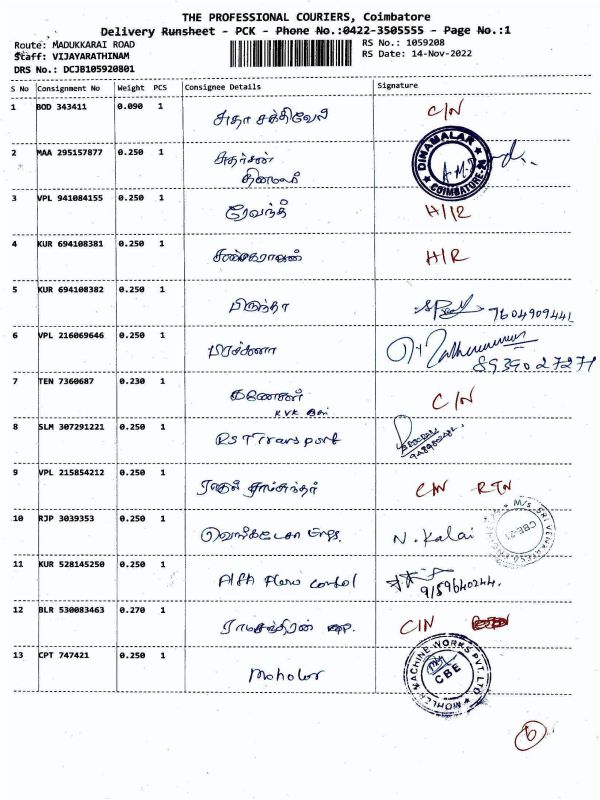 THE PROFESSIONAL COURIERS, Coimbatore
Delivery Runsheet - PCK - Phone No.:0422-3505555 - Page No.:1
Route: MADUKKARAI ROAD RS No.: 1059208
Staff: VIJAYARATHINAM RS Date: 14-Nov-2022
DRS No.: DCJB105920801
S No Consignment No Weight PCS Consignee Details Signature
1 BOD 343411 0.090 1 சுதா சக்திவேல் C/N
2 MAA 295157877 0.250 1 சுதர்சன் DINAMALAR
தினமலர் COIMBATORE
3 VPL 941084155 0.250 1 ரேவந்த் H/R
4 KUR 694108381 0.250 1 H/R
5 KUR 694108382 0.250 1 பிருந்தா 7604909441
6 VPL 216069646 0.250 1 பிரசன்னா
8939027271
7 TEN 7360687 0.230 1 கணேசன் C/N
KVK
8 SLM 307291221 0.250 1 RST Transport
9 VPL 215854212 0.250 1 C/N RTN
10 RJP 3039353 0.250 1 N. Kalai M/s. SRI CBE-21
11 KUR 528145250 0.250 1 Alfa Flow Control
9159640244
12 BLR 530083463 0.270 1 ராமசந்திரன் C/N
13 CPT 747421 0.250 1 MOHLER MACHINE WORKS PVT.LTD CBE
6